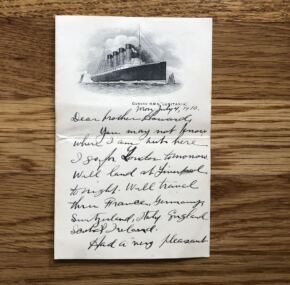 CUNARD R.M.S. "LUSITANIA".
Mon July 4, 1910.
Dear brother Edward,
You may not know
where I am but here
I go for London tomorrow
Will land at Liverpool
to night. Will travel
thru France, Germany,
Switzerland, Italy England
Scotl Ireland.
Had a very pleasant